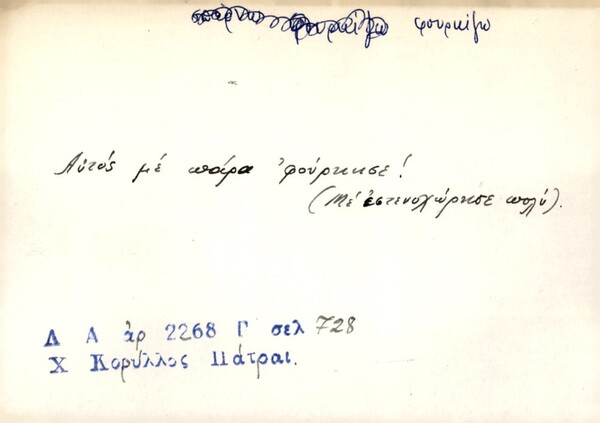 φουρκίζω
Αὐτός μέ πάρα 'φούρκισε!
(Μέ ἐστενοχώρησε πολύ).
Λ Α ἀρ 2268 Γ σελ 728
Χ Κορύλλος Πάτραι.